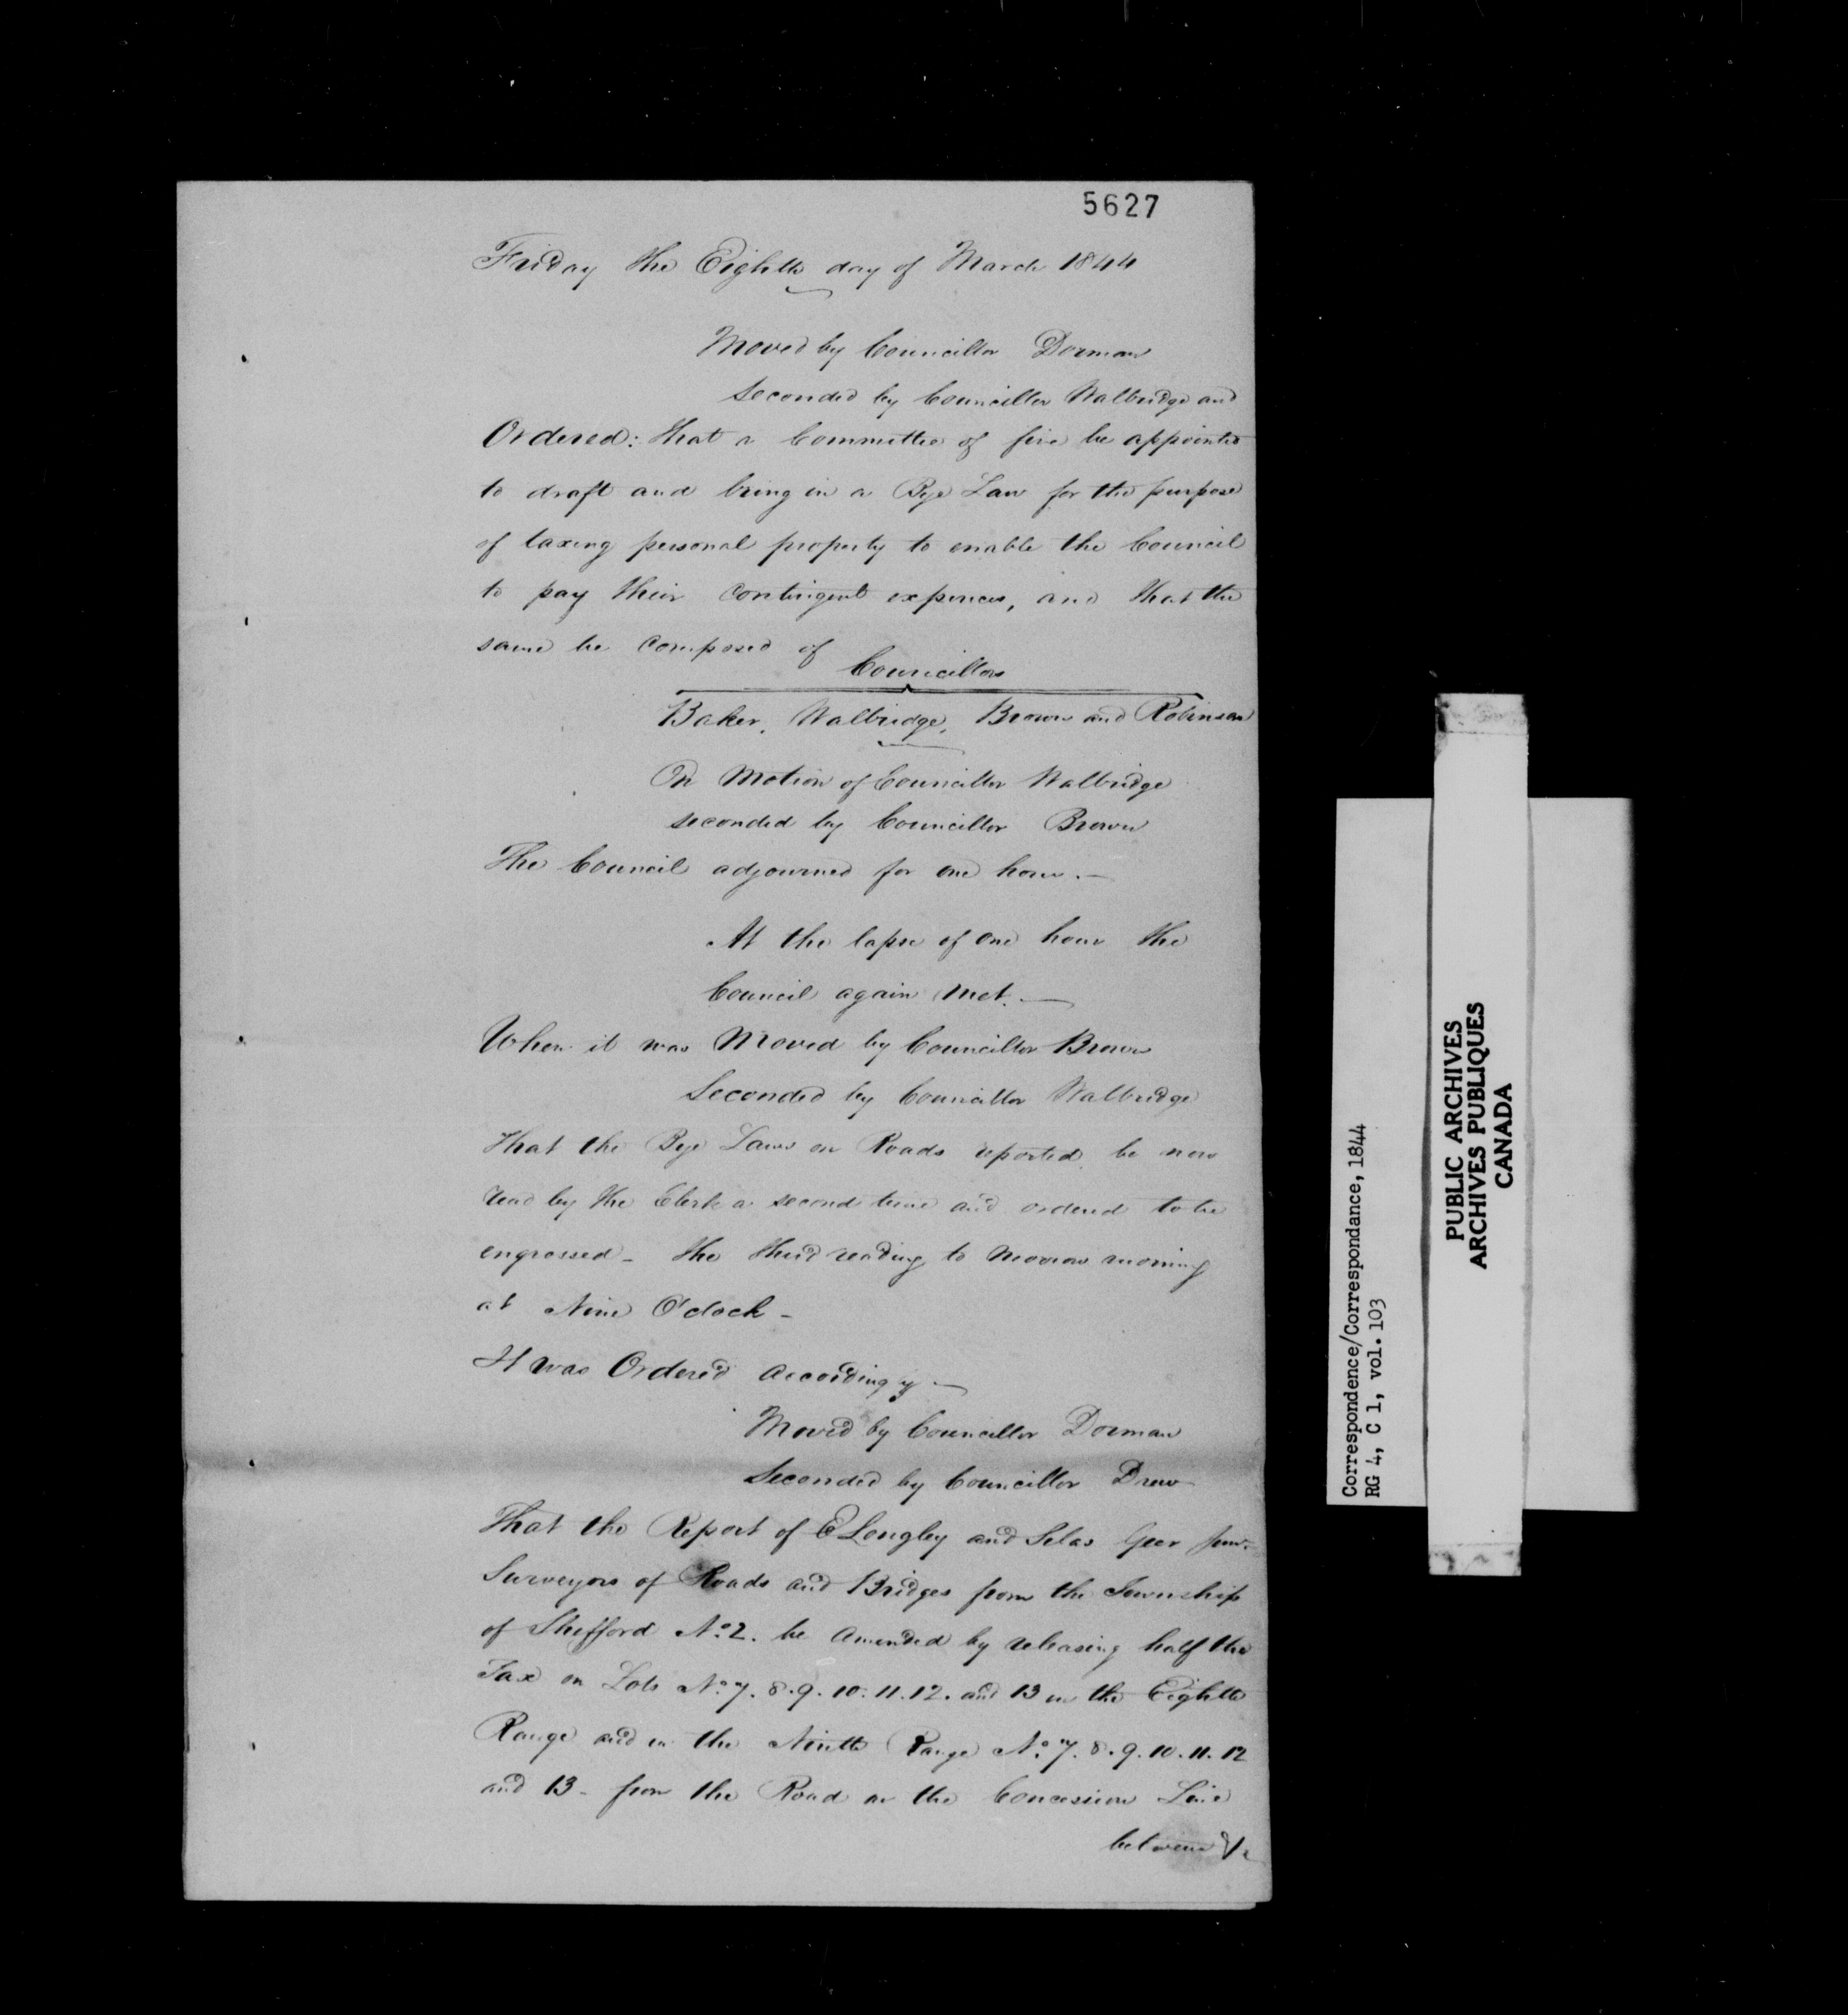 5627
Friday the Eighth day of March 1844
Moved by Councillor Dorman
Seconded by Councillor Walbridge and
Ordered: that a Committee of five be appointed
to draft and bring in a Bye Law for the purpose
of taxing personal property to enable the Council
to pay their Contingent expences, and that the
same be Composed of
Councillors
Baker, Walbridge, Brown and Robinson
On Motion of Councillor Walbridge
seconded by Councillor Brown
The Council adjourned for one hour.—
At the lapse of one hour the
Council again Met.—
When it was Moved by Councillor Brown
Seconded by Councillor Walbridge
That the Bye Laws on Roads reported be now
read by the Clerk a second time and ordered to be
engrossed - the third reading to Morrow morning
at Nine O'clock -
It was Ordered Accordingly —
Moved by Councillor Dorman
Seconded by Councillor Drew
That the Report of E Longley and Silas Geer Junr.
Surveyors of Roads and Bridges from the Township
of Shefford No. 2. be Amended by releasing half the
Tax on Lots No. 7. 8. 9. 10. 11. 12. and 13 in the Eighth
Range and in the Ninth Range No. 7. 8. 9. 10. 11. 12
and 13 - from the Road on the Concession Line
between
Correspondence/Correspondance, 1844
RG 4, C 1, vol. 103
PUBLIC ARCHIVES
ARCHIVES PUBLIQUES
CANADA